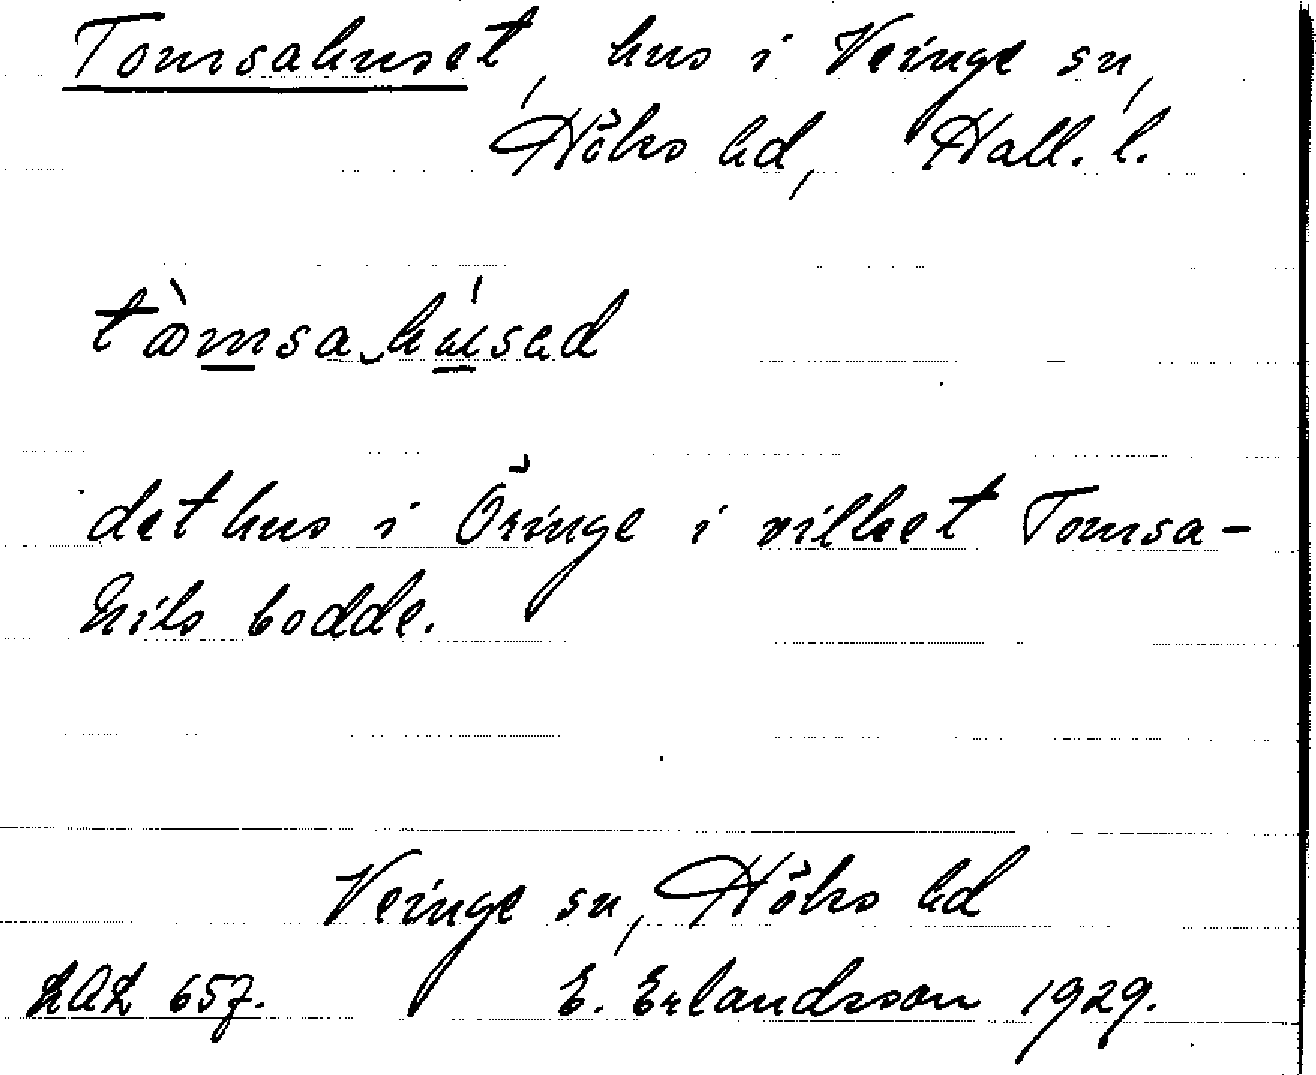 Tomsahuset, hus i Veinge sn,
Höks hd, Hall. l.
tòmsa‿húsəd
det hus i Öringe i vilket Tomsa-
Nils bodde.
Veinge sn, Höks hd
LAL 657. E. Erlandsson 1929.